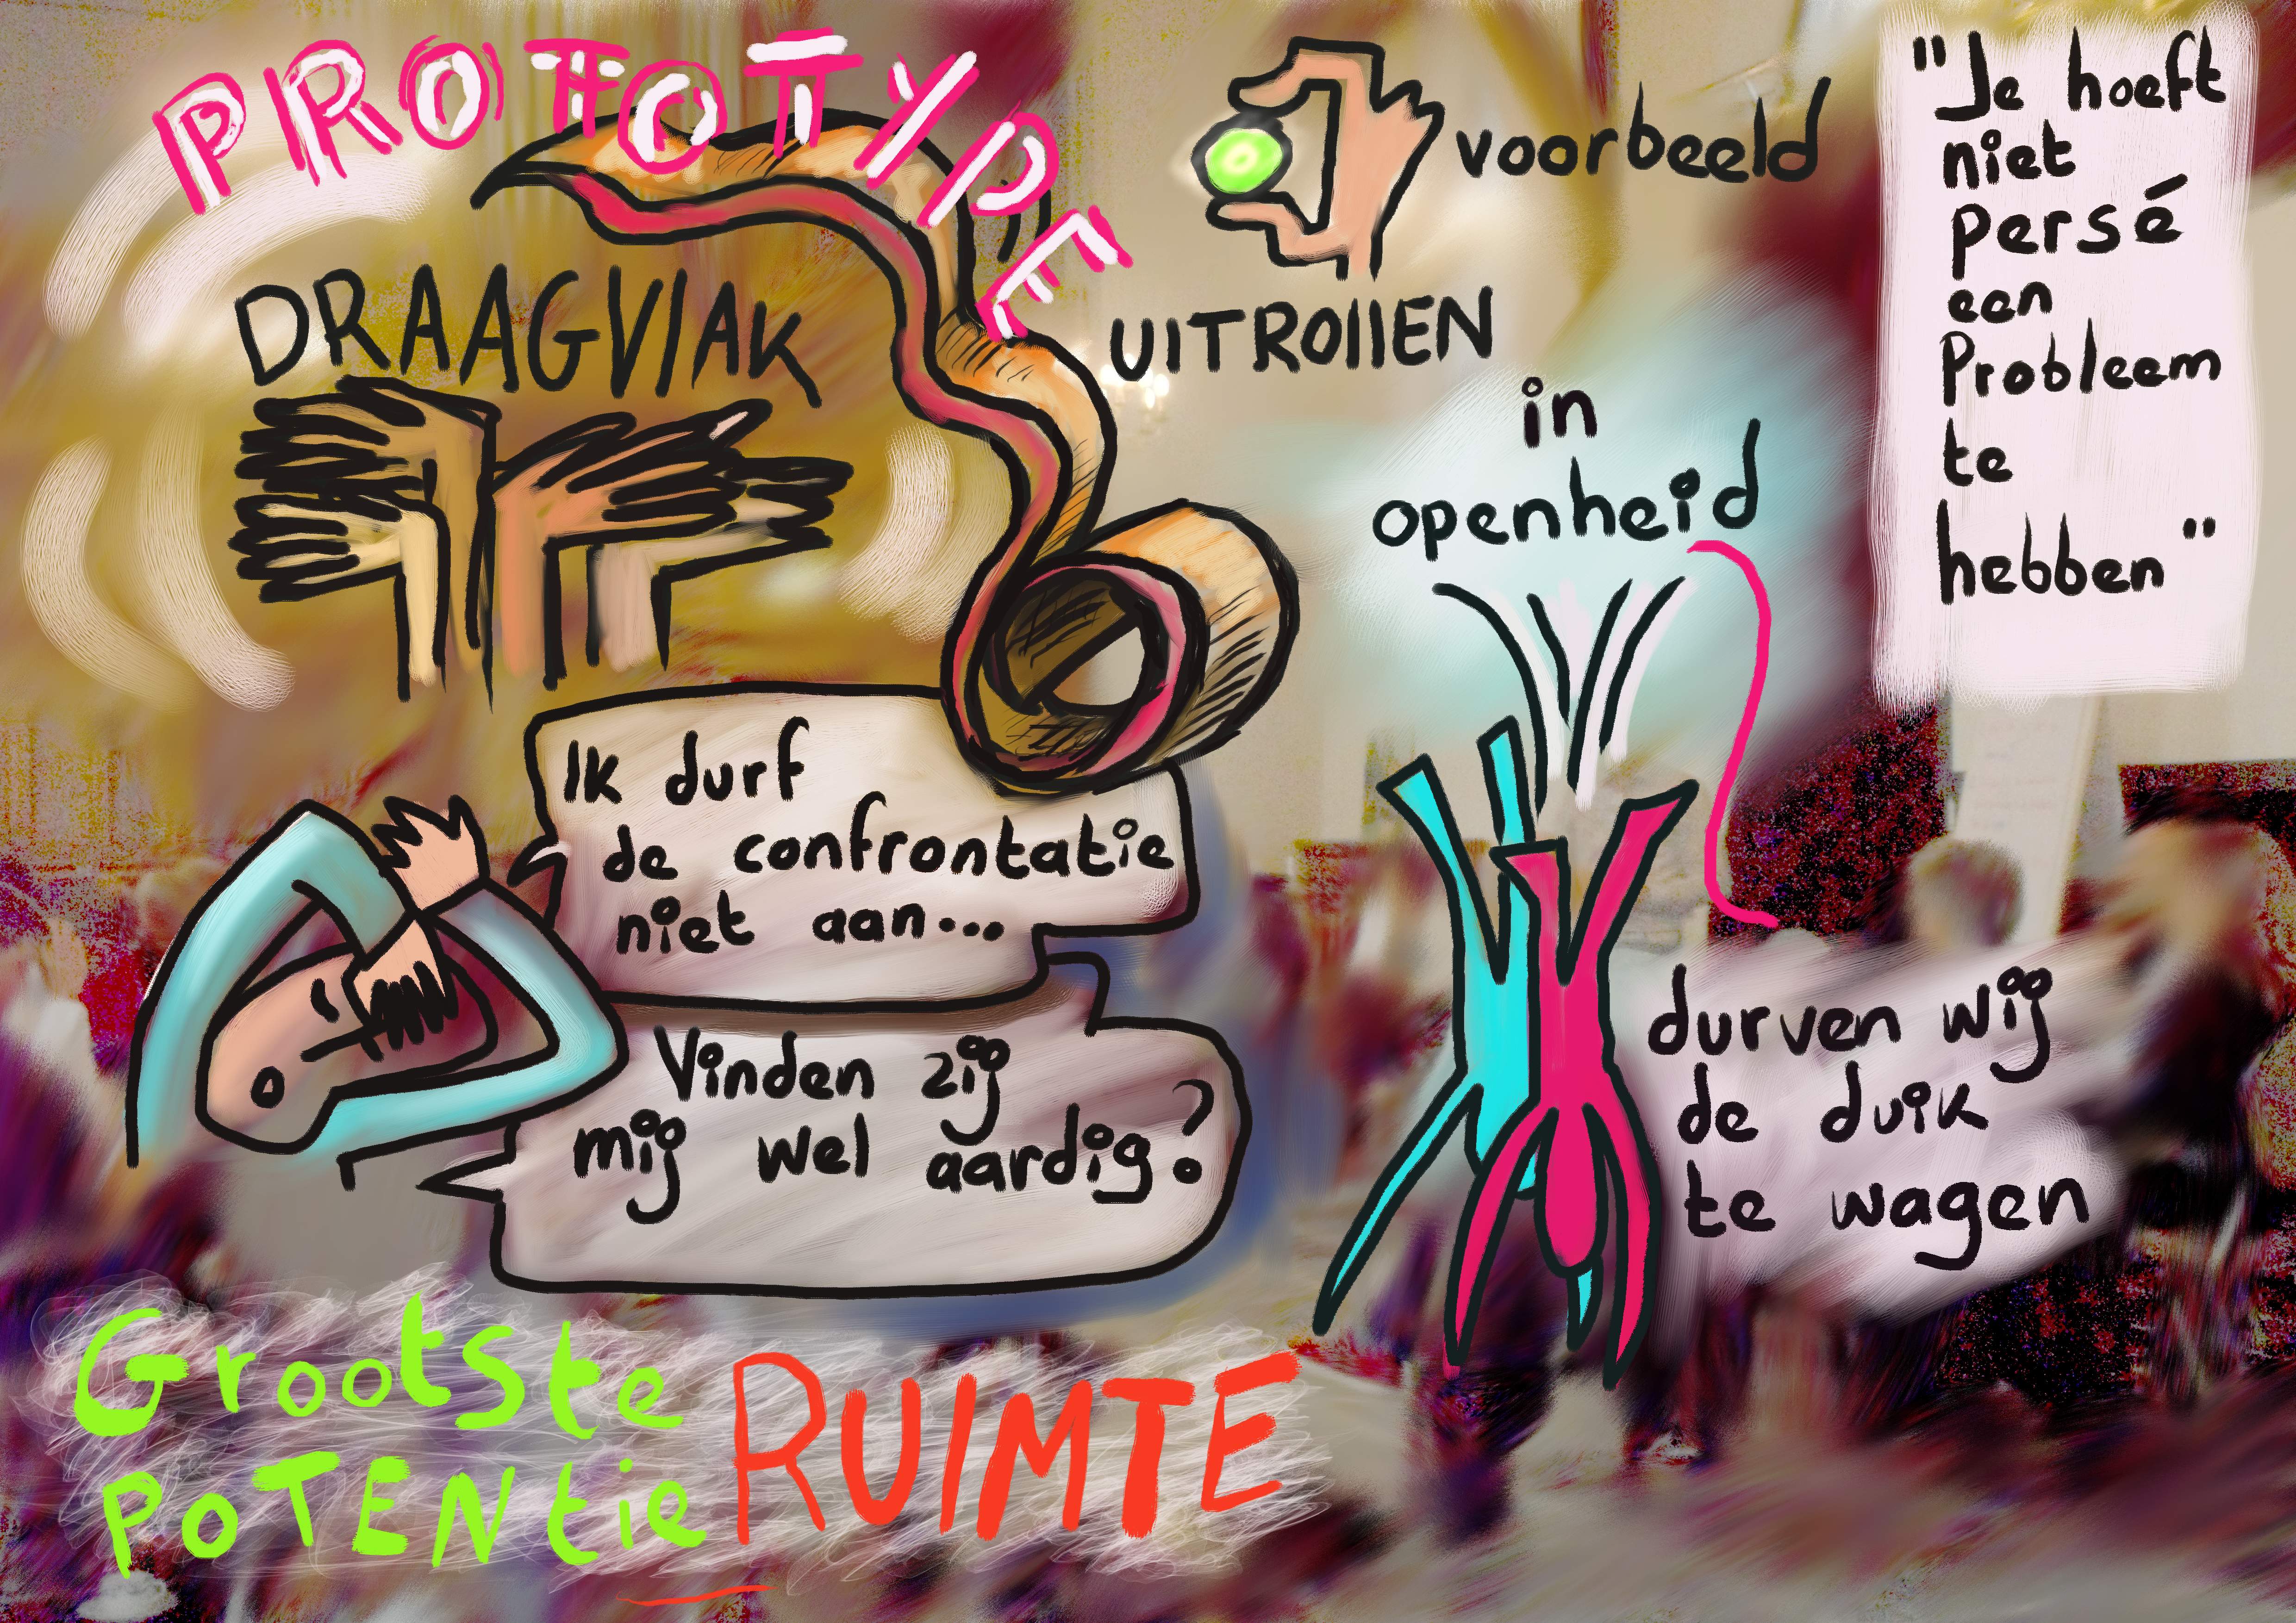 PROTOTYPE
voorbeeld
DRAAGVlAK
UITROllEN
"Je hoeft
niet
persé
een
Probleem
te
hebben"
in
openheid
Ik durf
de confrontatie
niet aan...
Vinden zij
mij wel aardig?
durven wij
de duik
te wagen
Grootste
POTENtie
RUIMTE